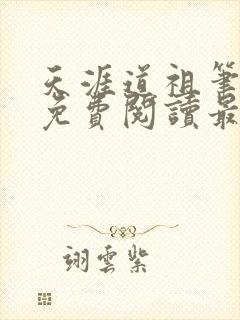 天涯道祖筆
免費閱讀最
翊雲紫